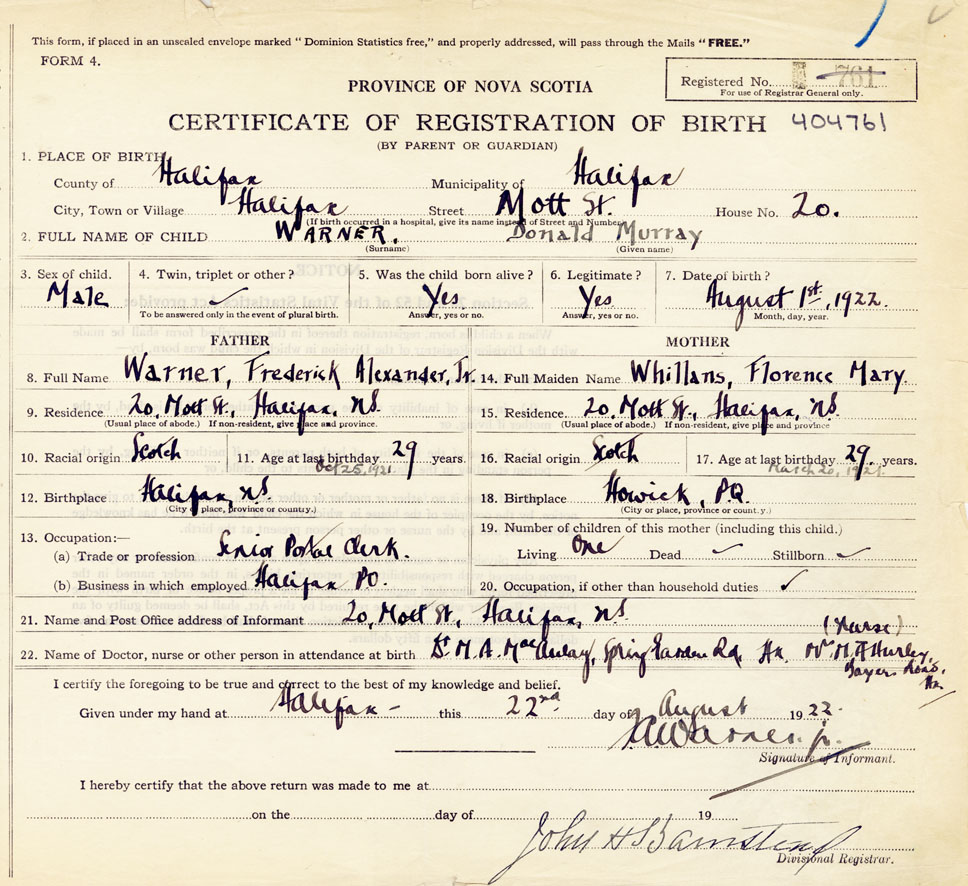 This form, if placed in an unsealed envelope marked “ Dominion Statistics free,” and properly addressed, will pass through the Mails “ FREE.”
FORM 4.
Registered No. 761
For use of Registrar General only.
PROVINCE OF NOVA SCOTIA
CERTIFICATE OF REGISTRATION OF BIRTH 404761
(BY PARENT OR GUARDIAN)
1. PLACE OF BIRTH
County of Halifax Municipality of Halifax
City, Town or Village Halifax Street Mott St. House No. 20.
(If birth occurred in a hospital, give its name instead of Street and Number)
2. FULL NAME OF CHILD WARNER. Donald Murray
(Surname) (Given name)
3. Sex of child. 4. Twin, triplet or other ? 5. Was the child born alive ? 6. Legitimate ? 7. Date of birth ?
Male ✓ Yes Yes August 1st, 1922.
To be answered only in the event of plural birth. Answer, yes or no. Answer, yes or no. Month, day, year.
FATHER MOTHER
8. Full Name Warner, Frederick Alexander, Jr. 14. Full Maiden Name Whillans, Florence Mary.
9. Residence 20, Mott St., Halifax, NS. 15. Residence 20, Mott St., Halifax, NS.
(Usual place of abode.) If non-resident, give place and province. (Usual place of abode.) If non-resident, give place and province
10. Racial origin Scotch 11. Age at last birthday 29 years. 16. Racial origin Scotch 17. Age at last birthday 29 years.
Oct 25, 1921. March 20, 1921.
12. Birthplace Halifax, NS. 18. Birthplace Howick, P.Q.
(City or place, province or country.) (City or place, province or country.)
19. Number of children of this mother (including this child.)
13. Occupation:—
(a) Trade or profession Senior Postal Clerk. Living One Dead ✓ Stillborn ✓
(b) Business in which employed Halifax PO. 20. Occupation, if other than household duties ✓
21. Name and Post Office address of Informant 20, Mott St., Halifax, NS. (Nurse)
22. Name of Doctor, nurse or other person in attendance at birth Dr M. A. MacAulay, Spring Garden Rd. Hx. Hurley,
Road,
Hx.
I certify the foregoing to be true and correct to the best of my knowledge and belief.
Given under my hand at Halifax – this 22nd day of August 1922.
Warner jr.
Signature of Informant.
I hereby certify that the above return was made to me at
on the day of 19
John H Barnstead
Divisional Registrar.